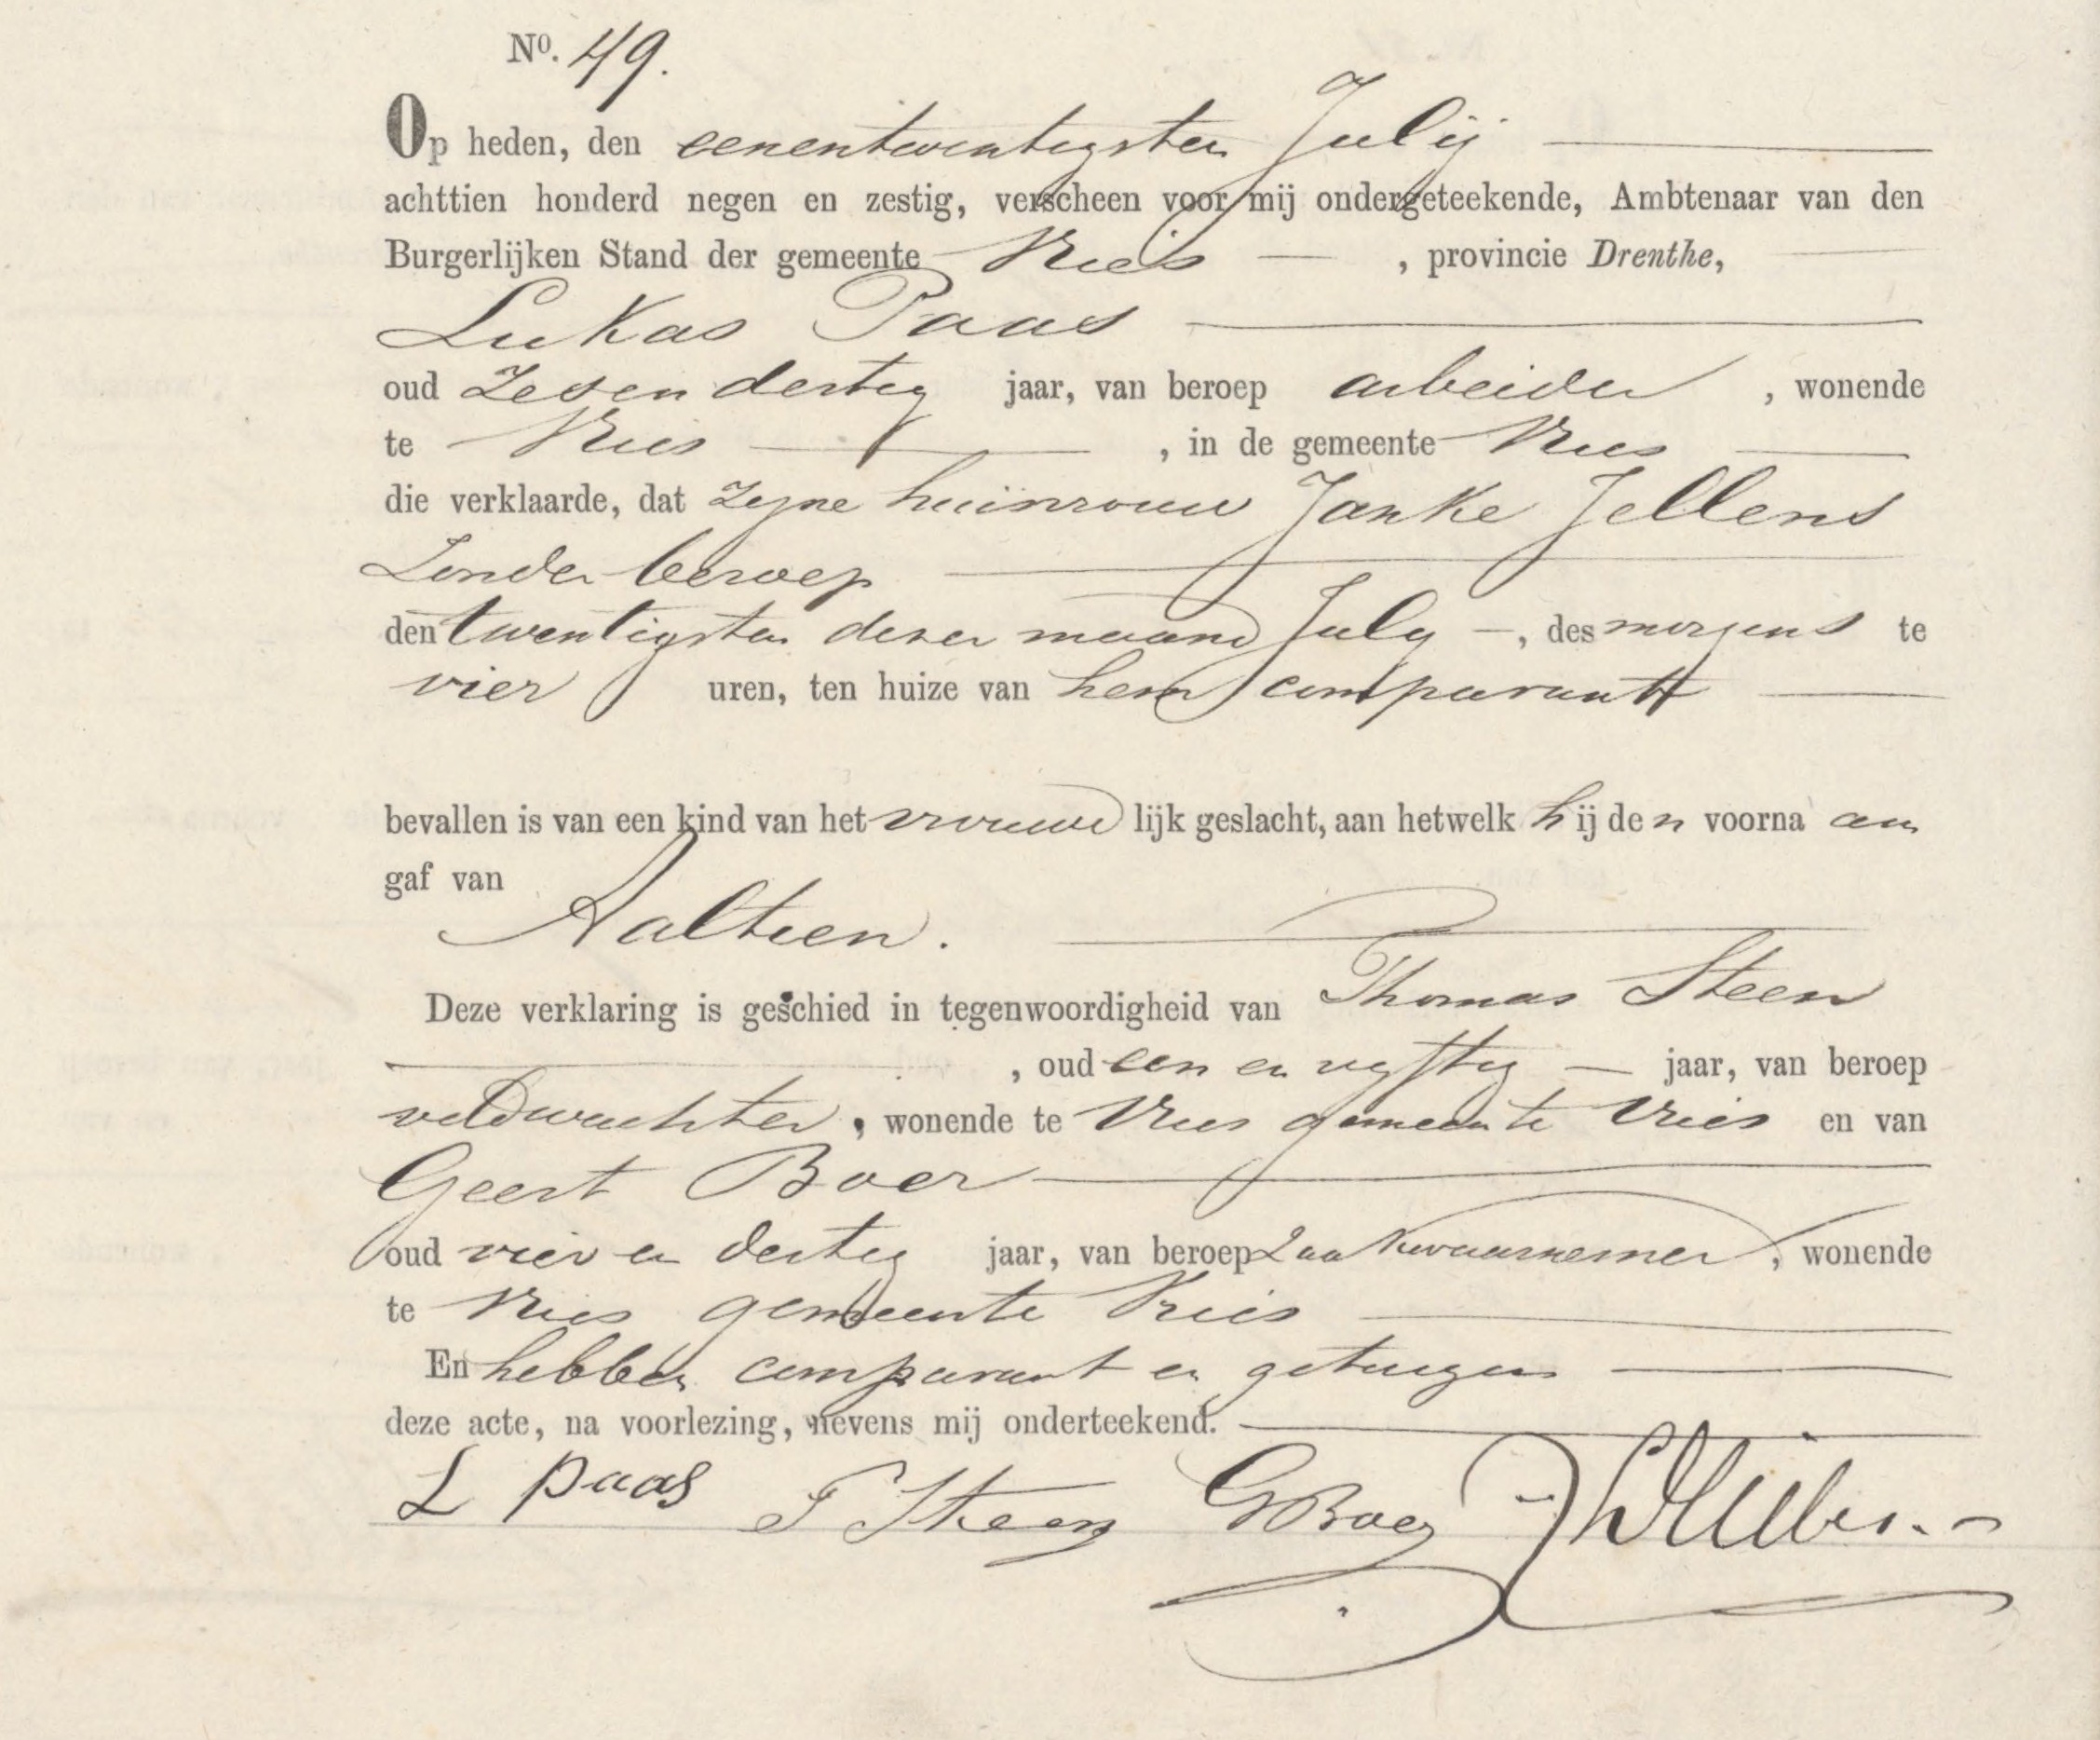 Nº. 49.
Op heden, den eenentwentigsten Julij
achttien honderd negen en zestig, verscheen voor mij ondergeteekende, Ambtenaar van den
Burgerlijken Stand der gemeente Vries, provincie Drenthe,
Lukas Paas
oud zesendertig jaar, van beroep arbeider, wonende
te Vries, in de gemeente Vries
die verklaarde, dat zijne huisvrouw Janke Jellens
Zonder beroep
den twentigsten dezer maand July, des morgens te
vier uren, ten huize van hem comparant
bevallen is van een kind van het vrouwelijk geslacht, aan hetwelk hij den voorna am
gaf van
Aaltien.
Deze verklaring is geschied in tegenwoordigheid van Thomas Steen
, oud een en vyftig jaar, van beroep
veldwachter, wonende te Vries gemeente Vries en van
Geert Boer
oud vier en dertig jaar, van beroep Zaakwaarnemer, wonende
te Vries gemeente Vries
En hebben comparant en getuigen
deze acte, na voorlezing, nevens mij onderteekend.
L Paas T Steen G Boer